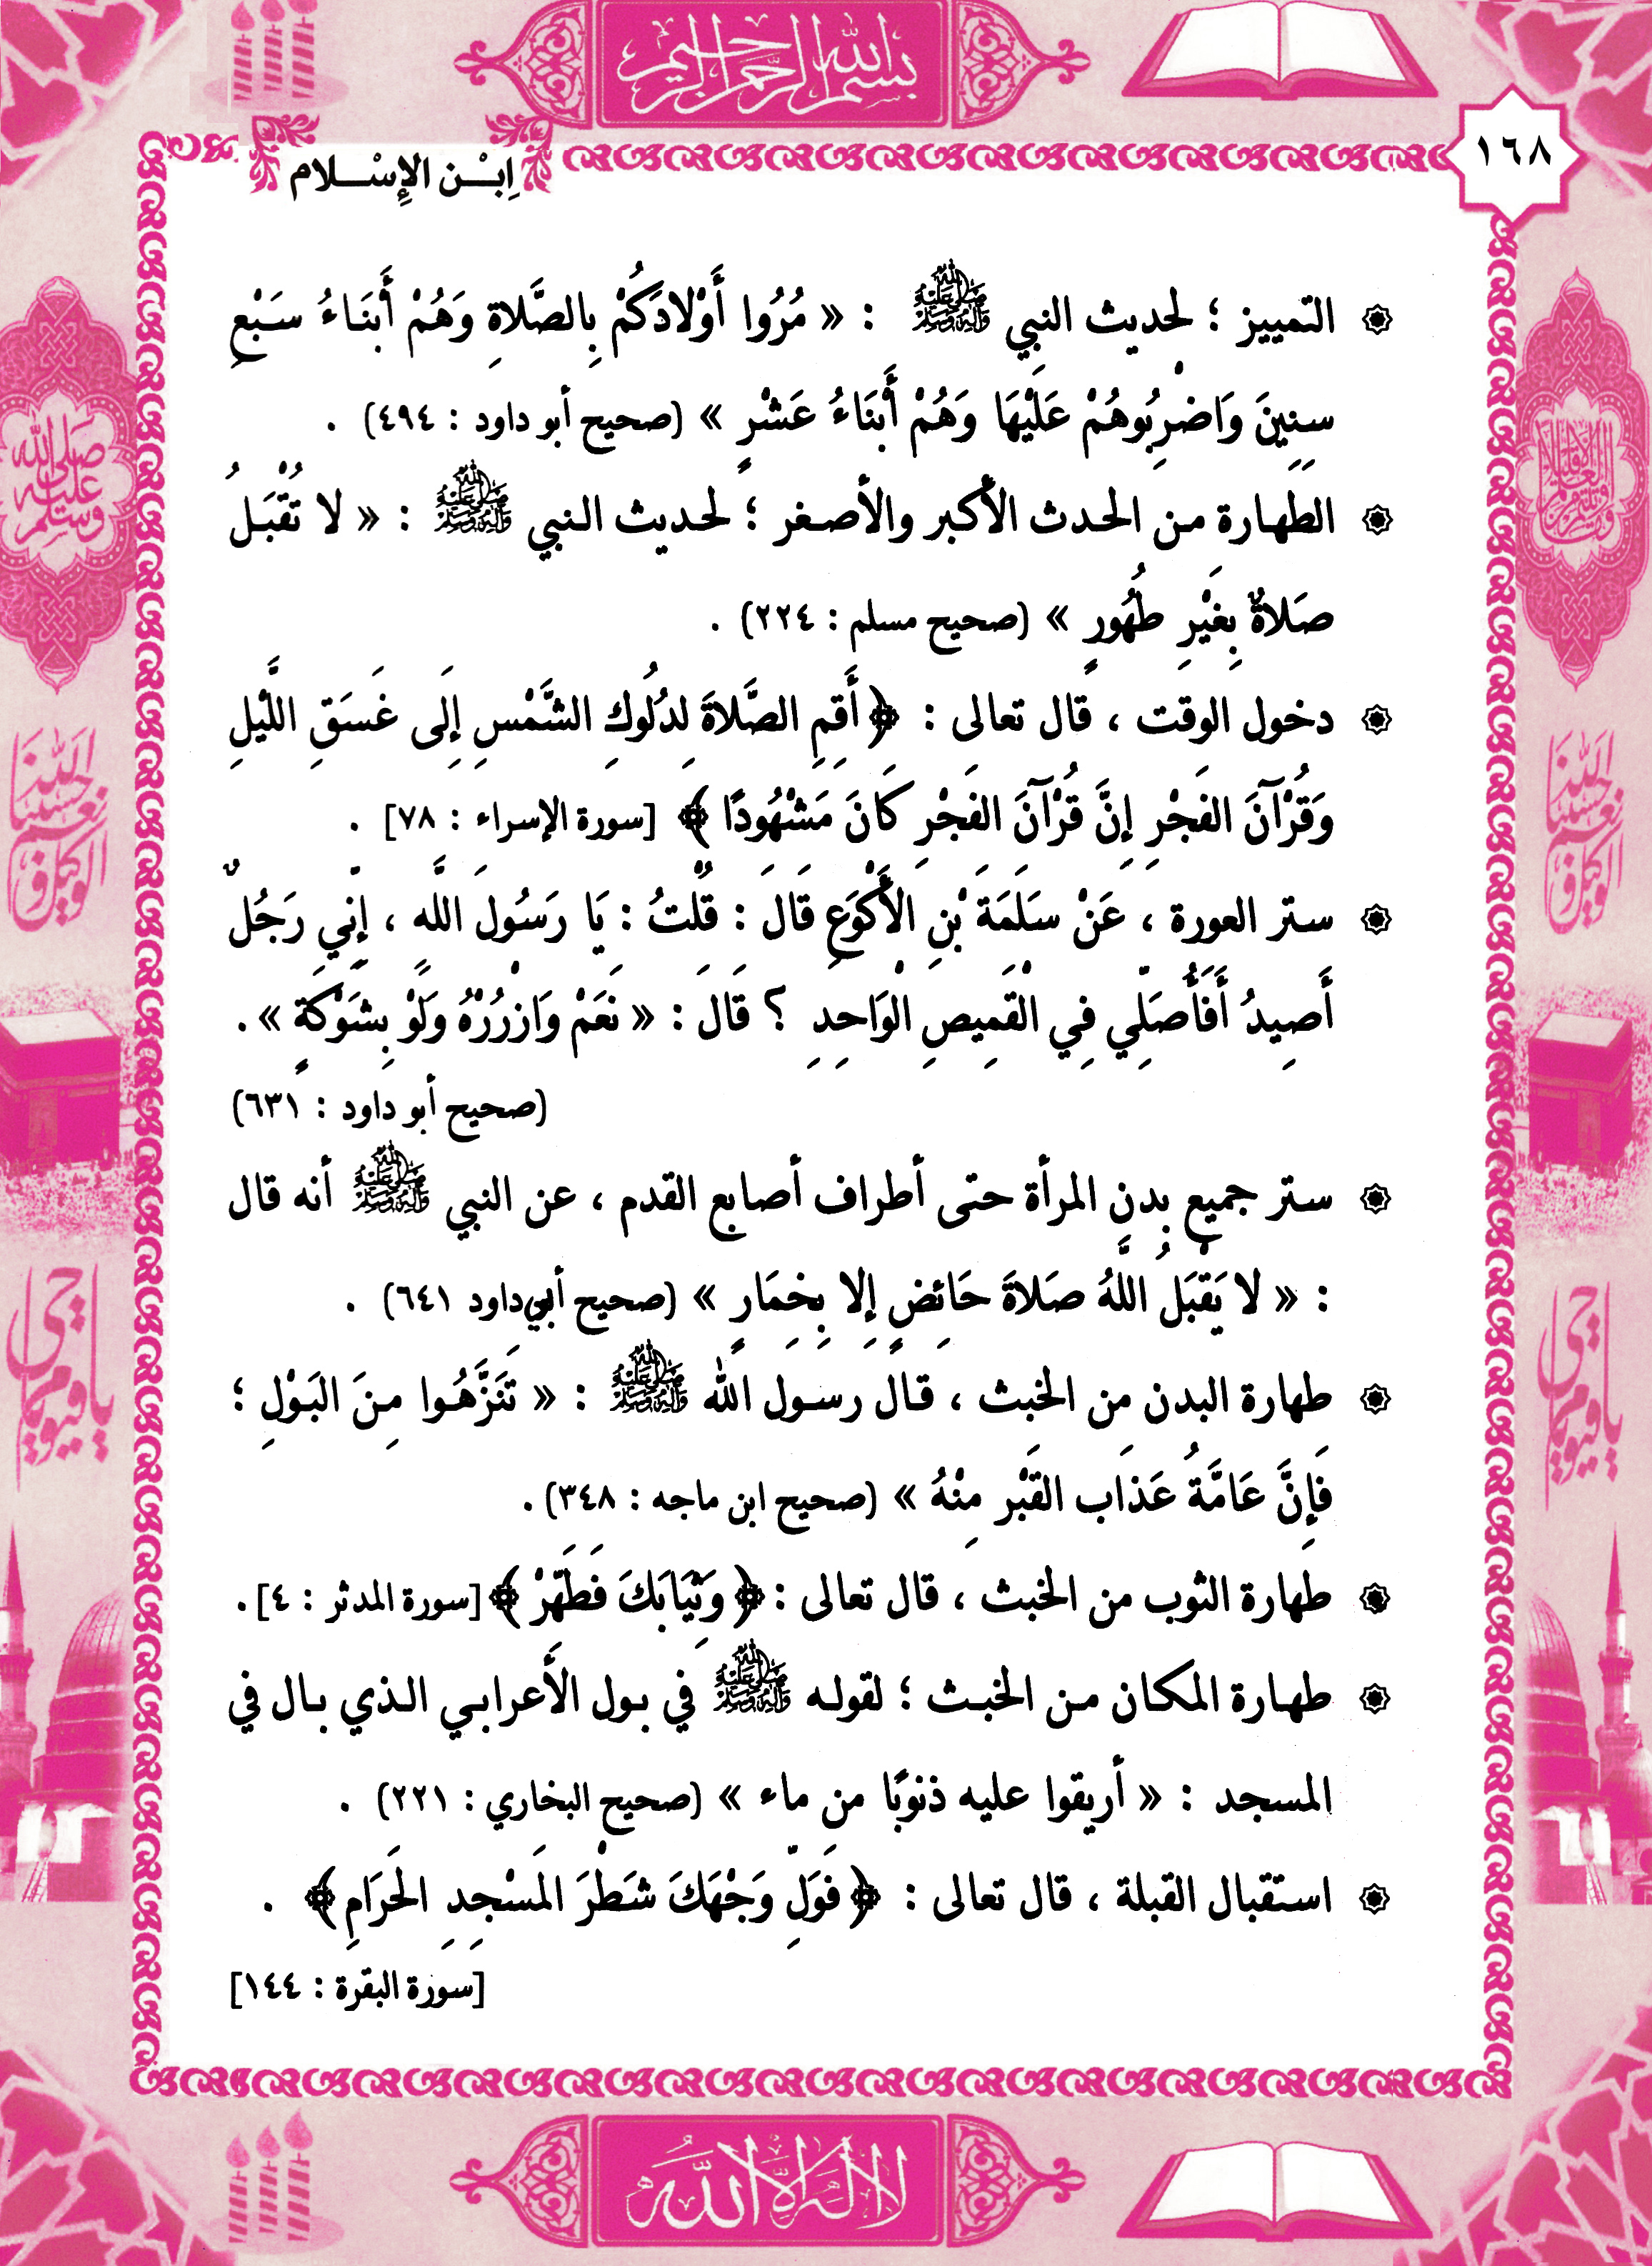 بسم الله الرحمن الرحيم
١٦٨
اِبْـــن الإِسْـــلام
التمييز ؛ لحديث النبي ﷺ : « مُرُوا أَوْلادَكُمْ بِالصَّلاةِ وَهُمْ أَبْنَاءُ سَبْعِ
سِنِينَ وَاضْرِبُوهُمْ عَلَيْهَا وَهُمْ أَبْنَاءُ عَشْرٍ » (صحيح أبو داود : ٤٩٤) .
الطهارة من الحدث الأكبر والأصغر ؛ لحديث النبي ﷺ : « لا تُقْبَلُ
صَلاةٌ بِغَيْرِ طُهُورٍ » (صحيح مسلم : ٢٢٤) .
دخول الوقت ، قال تعالى : ﴿ أَقِمِ الصَّلاةَ لِدُلُوكِ الشَّمْسِ إِلَى غَسَقِ اللَّيْلِ
وَقُرْآنَ الفَجْرِ إِنَّ قُرْآنَ الفَجْرِ كَانَ مَشْهُودًا ﴾ [سورة الإسراء : ٧٨] .
ستر العورة ، عَنْ سَلَمَةَ بْنِ الأَكْوَعِ قَالَ : قُلْتُ : يَا رَسُولَ اللَّهِ ، إِنِّي رَجُلٌ
أَصِيدُ أَفَأُصَلِّي فِي القَمِيصِ الْوَاحِدِ ؟ قَالَ : « نَعَمْ وَازْرُرْهُ وَلَوْ بِشَوْكَةٍ » .
(صحيح أبو داود : ٦٣١)
ستر جميع بدن المرأة حتى أطراف أصابع القدم ، عن النبي ﷺ أنه قال
: « لا يَقْبَلُ اللَّهُ صَلاةَ حَائِضٍ إِلا بِخِمَارٍ » (صحيح أبي داود ٦٤١) .
طهارة البدن من الخبث ، قال رسول الله ﷺ : « تَنَزَّهُوا مِنَ البَوْلِ ؛
فَإِنَّ عَامَّةَ عَذَابِ القَبْرِ مِنْهُ » (صحيح ابن ماجه : ٣٤٨) .
طهارة الثوب من الخبث ، قال تعالى : ﴿ وَثِيَابَكَ فَطَهِّرْ ﴾ [سورة المدثر : ٤] .
طهارة المكان من الخبث ؛ لقوله ﷺ في بول الأعرابي الذي بال في
المسجد : « أريقوا عليه ذنوبًا من ماء » (صحيح البخاري : ٢٢١) .
استقبال القبلة ، قال تعالى : ﴿ فَوَلِّ وَجْهَكَ شَطْرَ المَسْجِدِ الحَرَامِ ﴾ .
[سورة البقرة : ١٤٤]
لا إله إلا الله
صلى الله عليه وسلم
حسبنا الله ونعم الوكيل
حسبنا الله ونعم الوكيل
يا حي يا قيوم
يا حي يا قيوم